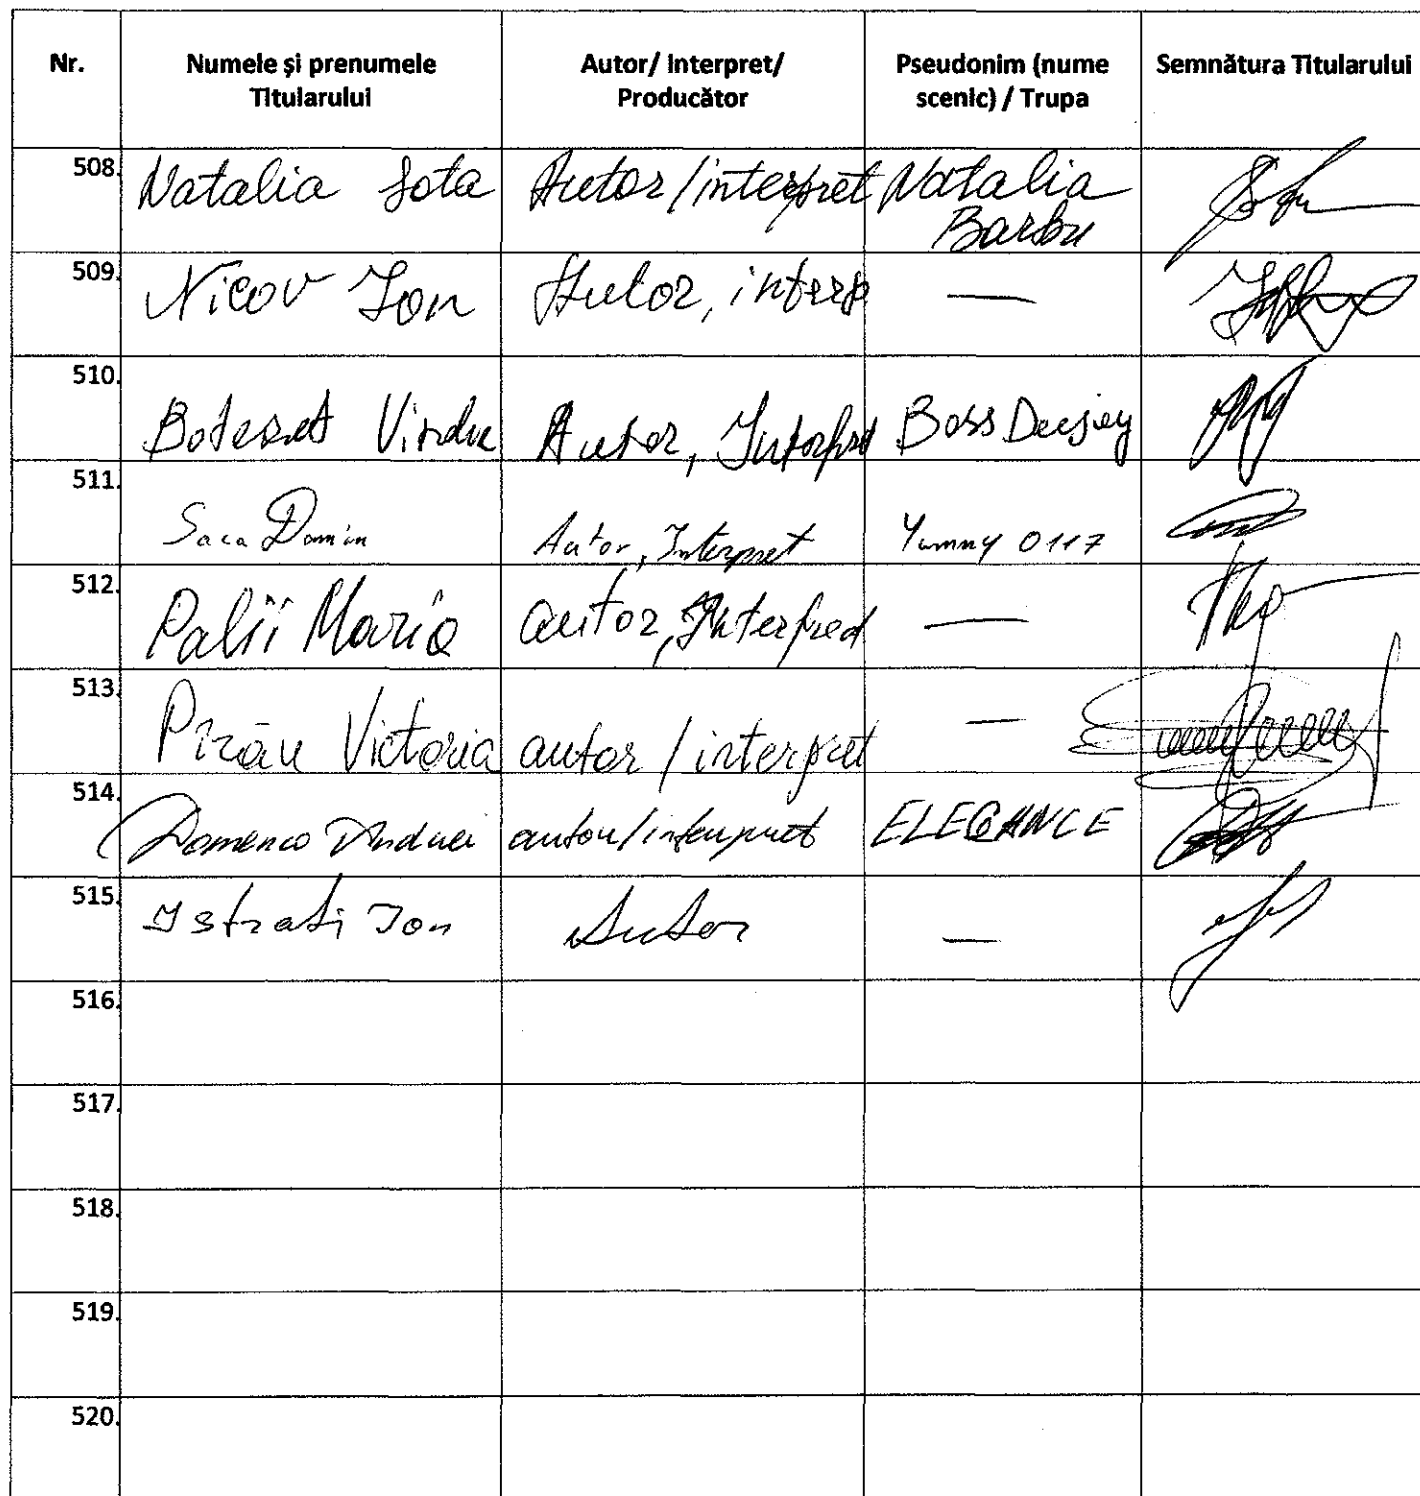 Nr. Numele și prenumele Titularului Autor/ Interpret/ Producător Pseudonim (nume scenic) / Trupa Semnătura Titularului
508. Natalia Sota Autor/interpret Natalia Barbu
509. Nicov Ion Autor, interp —
510. Botezat Autor, Interpret Boss Deejey
511. Saca Damin Autor, Interpret Yummy 0117
512. Palii Maria autor, Interpred —
513. Victoria autor / interpret —
514. Domenco Andrei autor/interpret ELEGANCE
515. Istrati Ion Autor —
516.
517.
518.
519.
520.